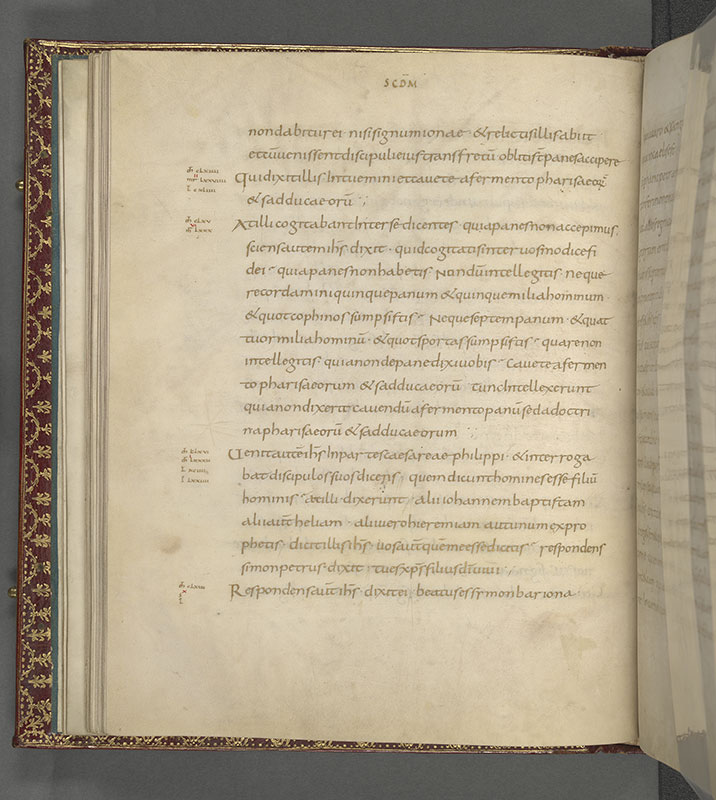 SCDM
non dabitur ei nisi signum ionae & relictis illis abiit
et cū venissent discipuli eius trans fretū obliti st panes accipere
Qui dixit illis Intuemini et cavete a fermento pharisaeorū
& sadducaeorū
At illi cogitabant Inter se dicentes quia panes non accepimus.
sciens autem ihs dixit · quid cogitatis inter vos modice fi
dei · quia panes non habetis Nundū intellegitis neque
recordamini quinque panum & quinque milia hominum
& quot cophinos sumpsistis Neque septem panum · & quat
tuor milia hominū · & quot sportas sumpsistis quare non
intellegitis quia non de pane dixi vobis Cavete a fermen
to pharisaeorum & sadducaeorū tunc Intellexerunt
quia non dixerit cavendū a fermento panū sed a doctri
na pharisaeorū & sadducaeorum
Uenit autē ihs In partes caesareae philippi · & interroga
bat discipulos suos dicens quem dicunt homines esse filiū
hominis at illi dixerunt alii iohannem baptistam
alii aut heliam · alii vero hieremiam aut unum ex pro
phetis dicit illis ihs vos aut quem me esse dicitis respondens
simon petrus dixit tu es xps filius dī vivi
Respondens aut ihs dixit ei beatus es symon bar iona